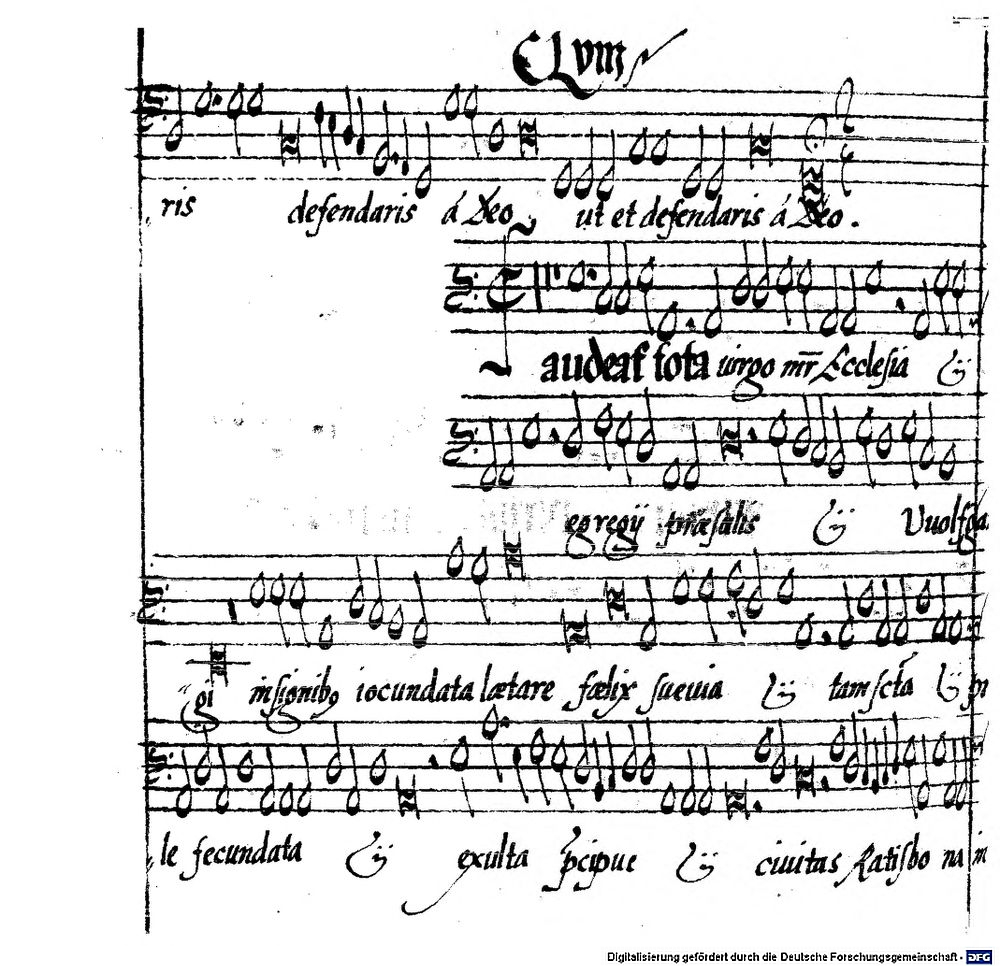 CLVIII
ris defendaris á Deo ut et defendaris á Deo.
audeat tota uirgo mr̄ Ecclesia ij
egregij præsulis ij Vuolfga
gi insignibꝰ iocundata lætare fælix sueuia ij tam sctā ij
le fecundata ij exulta p̄cipue ij ciuitas Ratisbo na in
Digitalisierung gefördert durch die Deutsche Forschungsgemeinschaft - DFG